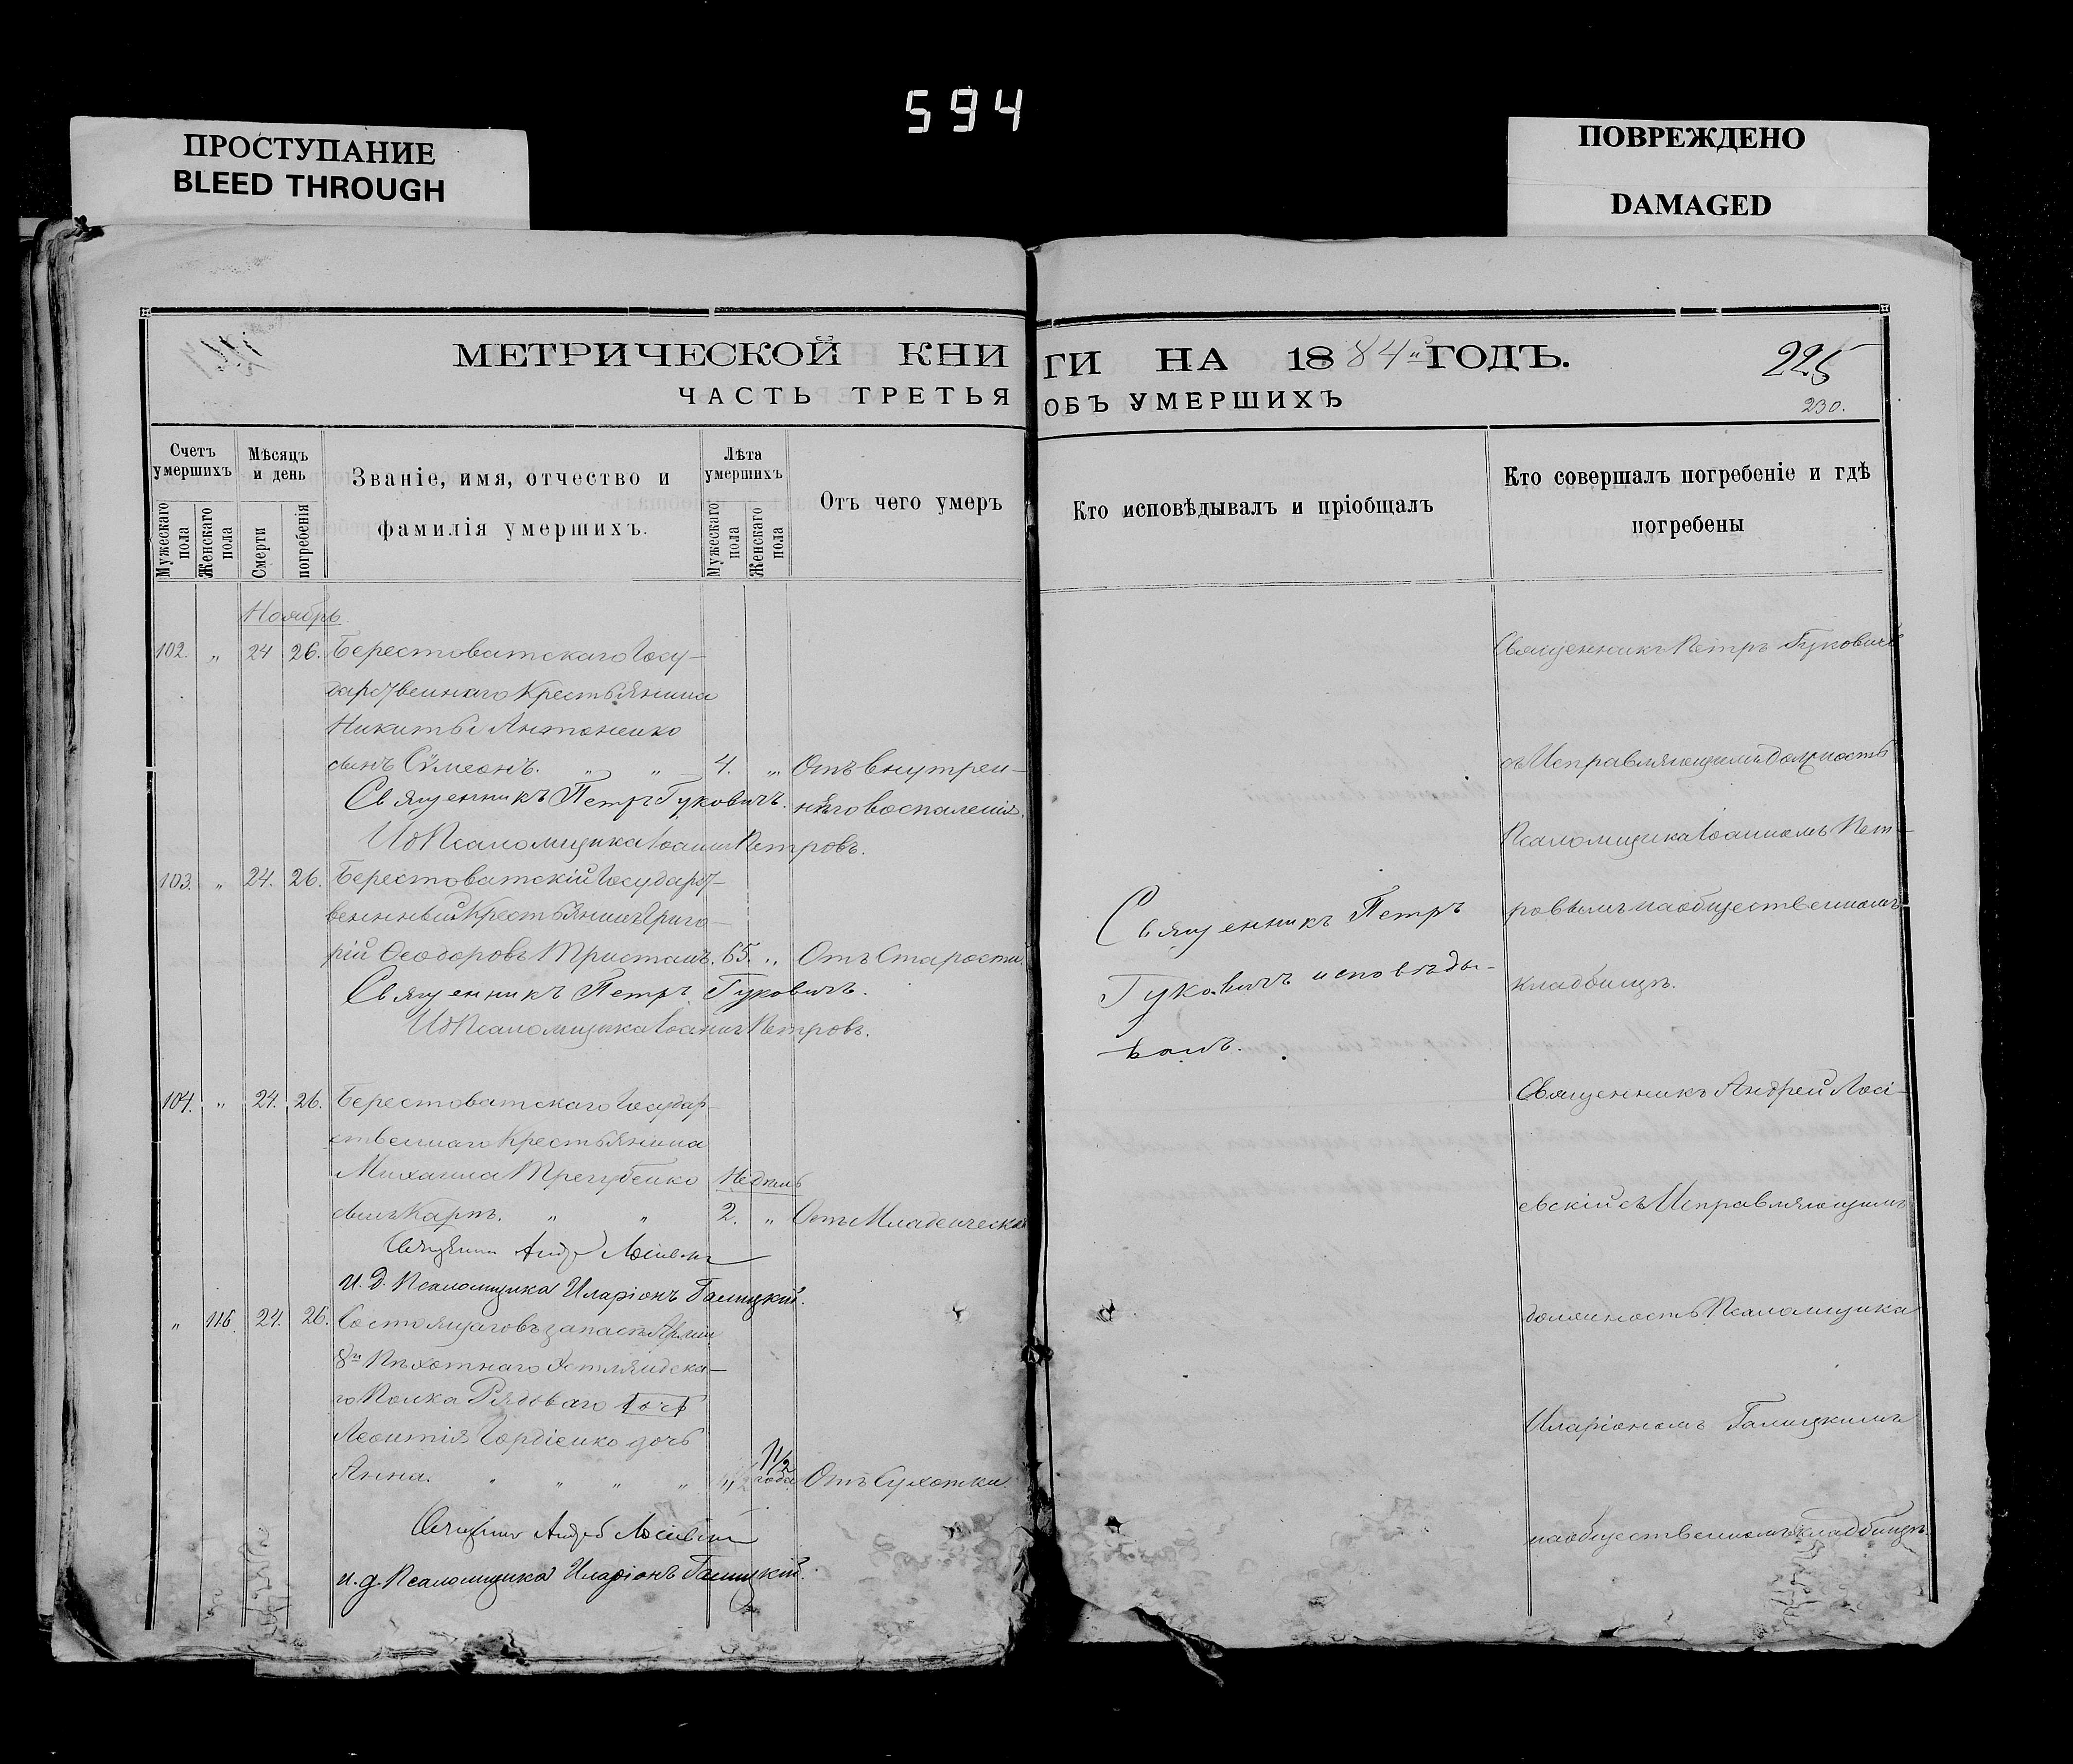 594
ПРОСТУПАНИЕ
BLEED THROUGH
ПОВРЕЖДЕНО
DAMAGED
МЕТРИЧЕСКОЙ КНИГИ НА 1884 ГОДЪ.
225
230.
ЧАСТЬ ТРЕТЬЯ ОБЪ УМЕРШИХЪ
Счетъ умершихъ
Мужескаго пола
Женскаго пола
Мѣсяцъ и день
Смерти
погребенія
Званіе, имя, отчество и
фамилія умершихъ.
Лѣта умершихъ
Мужескаго пола
Женскаго пола
Отъ чего умеръ
Кто исповѣдывалъ и пріобщалъ
Кто совершалъ погребеніе и гдѣ
погребены
Ноябрь.
102. „ 24 26. Берестоватскаго Госу-
дарственнаго Крестьянина
Никиты Антоненко
сынъ Сѵмеонъ. „ „ 4. „ Отъ внутрен-
няго воспаленія.
Священникъ Петръ Гуковичъ.
Ид Псаломщика Іоаннъ Петровъ.
Священникъ Петръ Гуковичъ
съ Исправляющимъ должность
Псаломщика Іоанномъ Пет-
ровымъ на общественномъ
кладбищѣ.
103. „ 24. 26. Берестоватскій Государст-
венный Крестьянинъ Григо-
рій Ѳеодоровъ Тристанъ. 65. „ Отъ Старости.
Священникъ Петръ Гуковичъ.
Ид Псаломщика Іоаннъ Петровъ.
Священникъ Петръ
Гуковичъ исповѣды-
валъ.
104. „ 24. 26. Берестоватскаго Государ-
ственнаго Крестьянина
Михаила Трегубенко Недѣль
сынъ Карпъ. „ „ 2. „ Отъ Младенческой
Священникъ Андрей
и. д. Псаломщика Иларіонъ Галицкій.
Священникъ Андрей Лосі-
евскій съ Исправляющимъ
должность Псаломщика
Иларіономъ Галицкимъ
на общественномъ кладбищѣ.
„ 116. 24. 26. Состоящаго въ запасѣ Арміи
8го Пѣхотнаго Эстляндска-
го Полка Рядоваго
Леонтія Гордіенко дочь
Анна. „ „ „ „ 1 1/2 года Отъ Сухотки.
Священникъ Андрей
и. д. Псаломщика Иларіонъ Галицкій.